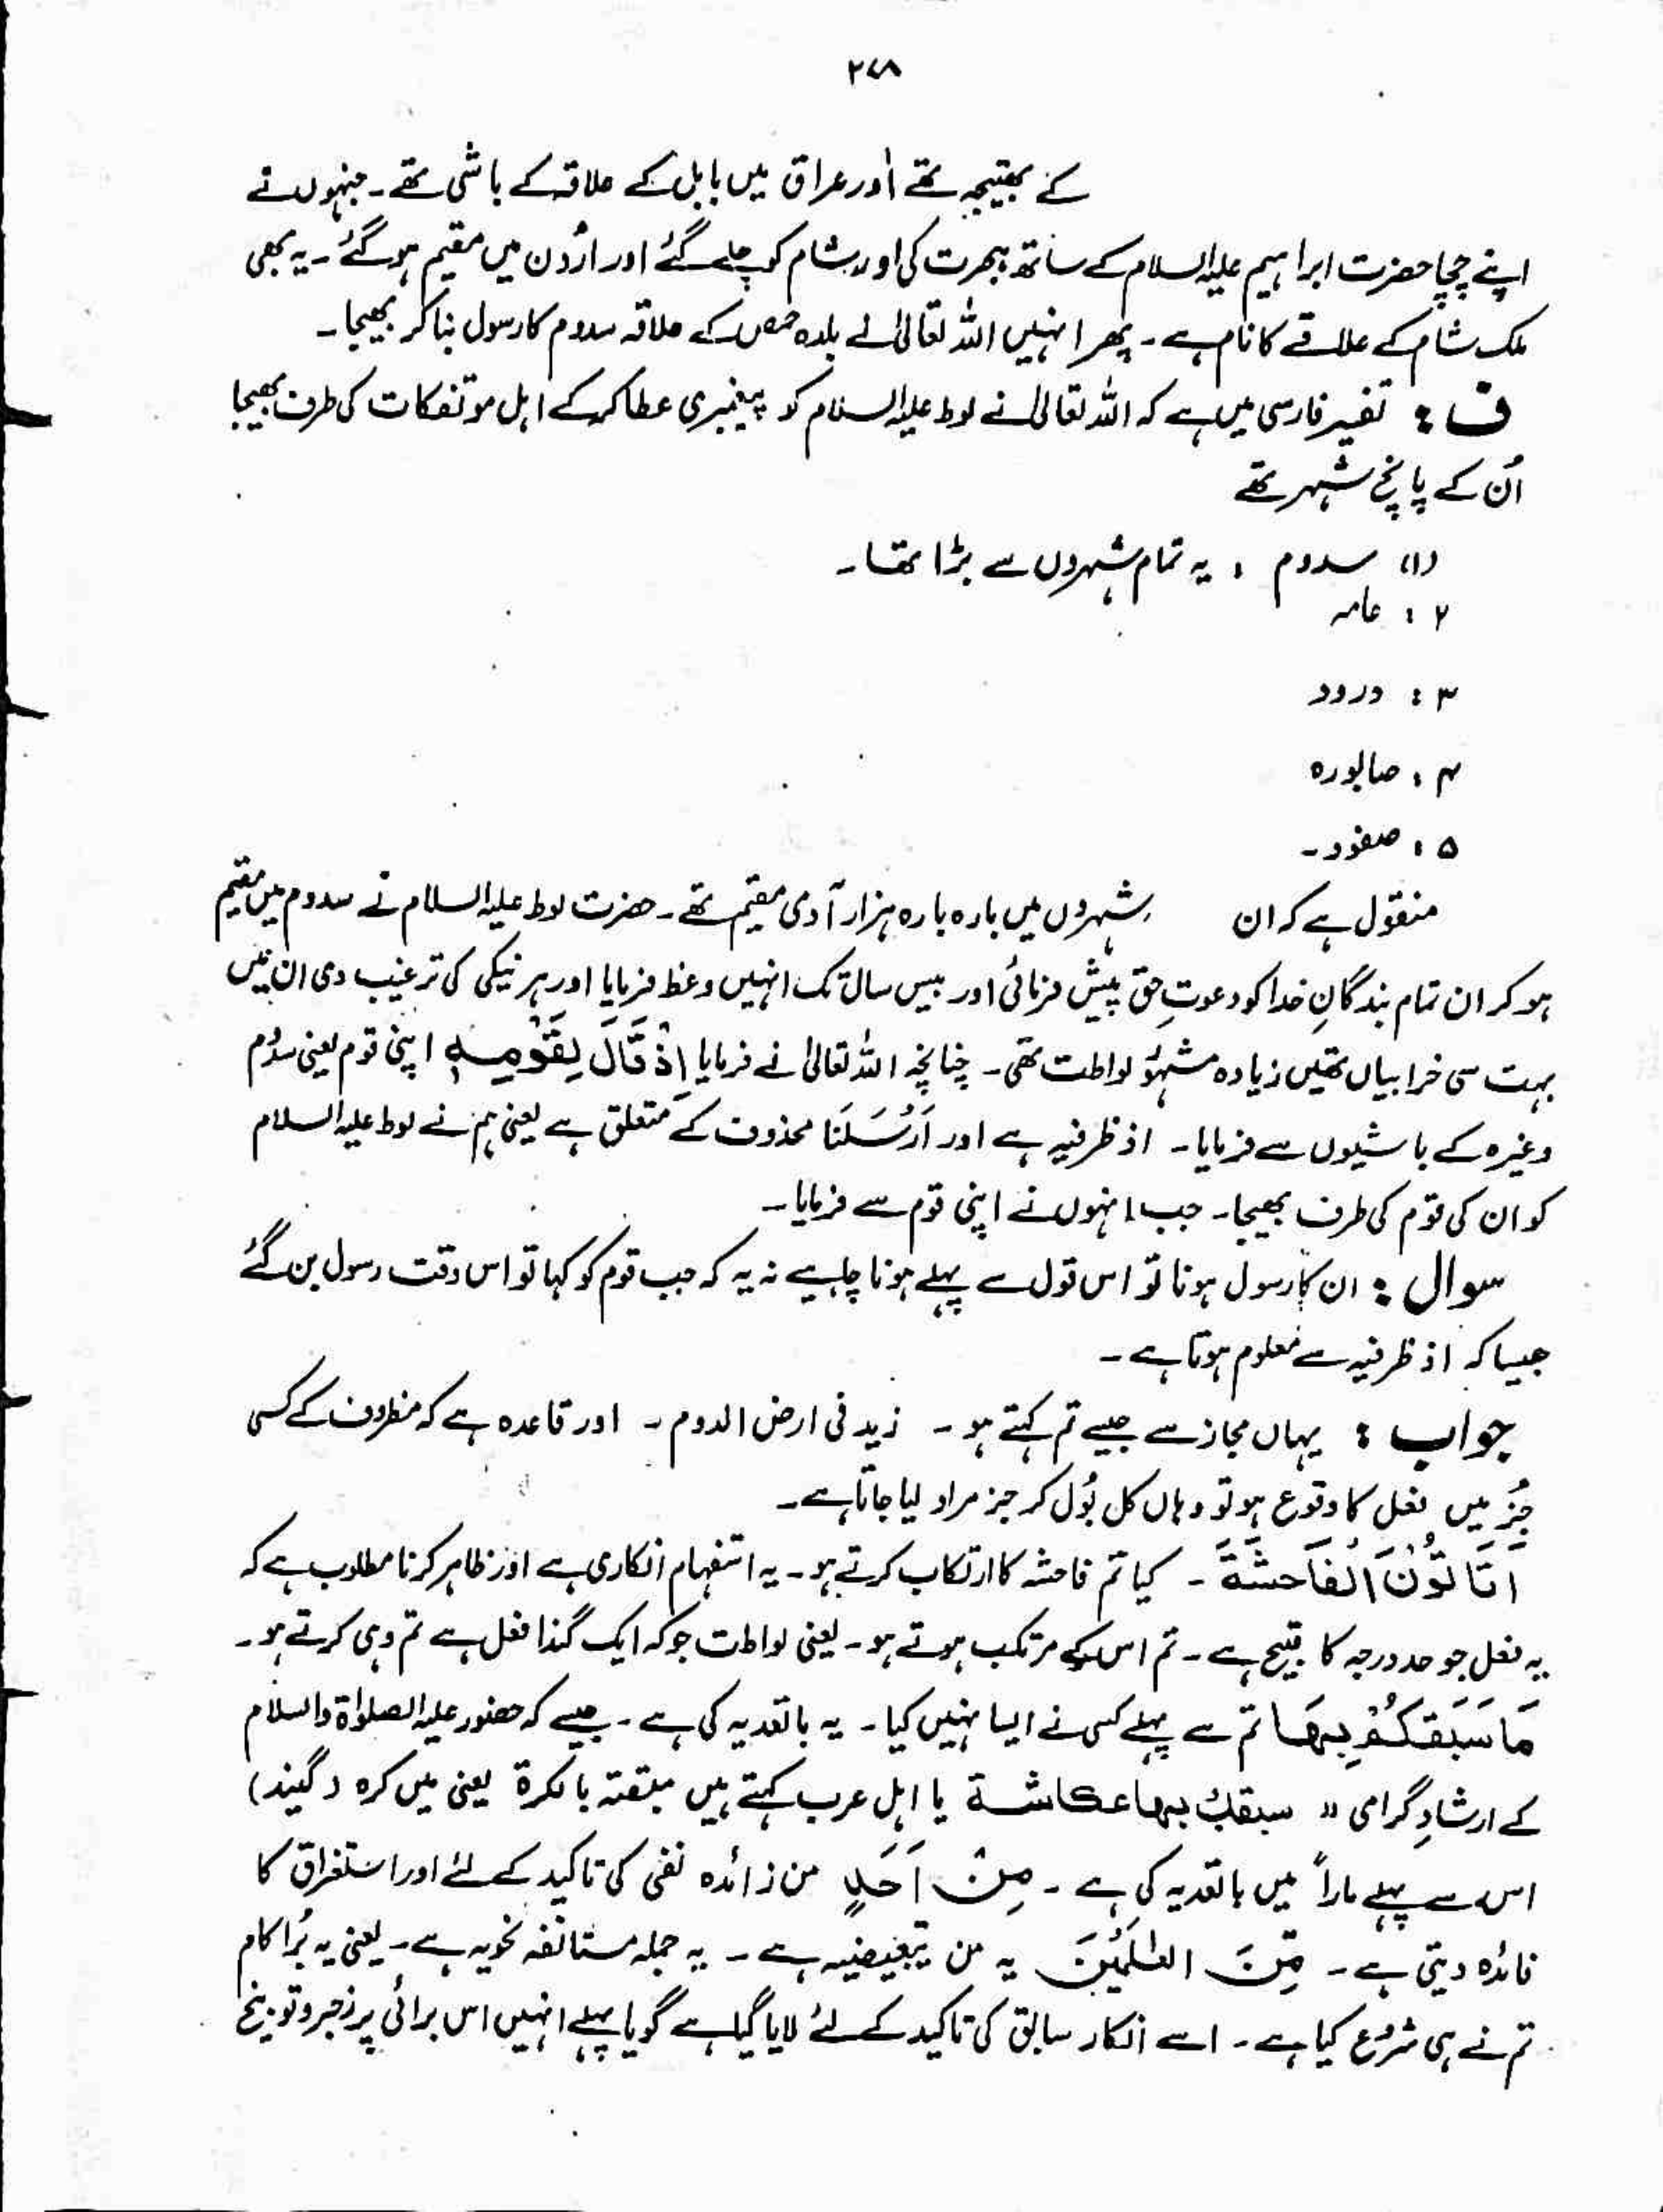 ۲۷۸
کے بھتیجہ تھے اور عراق میں بابل کے علاقہ کے باشی تھے ۔ جنہوں نے
اپنے چچا حضرت ابراہیم علیہ السلام کے ساتھ ہجرت کی اور شام کو چلے گئے اور اُردن میں مقیم ہو گئے ۔ یہ بھی
ملک شام کے علاقے کا نام ہے ۔ پھر انہیں اللہ تعالیٰ نے بلدہ حمص کے علاقہ سدوم کا رسول بنا کر بھیجا ۔
ف : تفسیر فارسی میں ہے کہ اللہ تعالیٰ نے لوط علیہ السلام کو پیغمبری عطا کر کے اہل موتفکات کی طرف بھیجا
اُن کے پانچ شہر تھے
(۱) سدوم : یہ تمام شہروں سے بڑا تھا ۔
۲ : عامہ
۳ : درود
۴ : صابورہ
۵ : صفود ۔
منقول ہے کہ ان شہروں میں بارہ بارہ ہزار آدمی مقیم تھے ۔ حضرت لوط علیہ السلام نے سدوم میں مقیم
ہو کر ان تمام بندگانِ خدا کو دعوتِ حق پیش فرمائی اور بیس سال تک انہیں وعظ فرمایا اور ہر نیکی کی ترغیب دی ان میں
بہت سی خرابیاں تھیں زیادہ مشہور لواطت تھی ۔ چنانچہ اللہ تعالیٰ نے فرمایا اِذْ قَالَ لِقَوْمِهٖ اپنی قوم یعنی سدوم
وغیرہ کے باشیوں سے فرمایا ۔ اذ ظرفیہ ہے اور اَرْسَلْنَا محذوف کے متعلق ہے یعنی ہم نے لوط علیہ السلام
کو ان کی قوم کی طرف بھیجا ۔ جب انہوں نے اپنی قوم سے فرمایا ۔
سوال : ان کا رسول ہونا تو اس قول سے پہلے ہونا چاہیے نہ یہ کہ جب قوم کو کہا تو اس وقت رسول بن گئے
جیسا کہ اذ ظرفیہ سے معلوم ہوتا ہے ۔
جواب : یہاں مجاز سے جیسے تم کہتے ہو ۔ زید فی ارض الدوم ۔ اور قاعدہ ہے کہ مظروف کے کسی
جُز میں فعل کا وقوع ہو تو وہاں کل بول کر جز مراد لیا جاتا ہے ۔
اَتَاْتُوْنَ الْفَاحِشَةَ ۔ کیا تم فاحشہ کا ارتکاب کرتے ہو ۔ یہ استفہام انکاری ہے اور ظاہر کرنا مطلوب ہے کہ
یہ فعل جو حد درجہ کا قبیح ہے ۔ تم اس کے مرتکب ہوتے ہو ۔ یعنی لواطت جو کہ ایک گندا فعل ہے تم وہی کرتے ہو ۔
مَا سَبَقَكُمْ بِهَا تم سے پہلے کسی نے ایسا نہیں کیا ۔ یہ با تعدیہ کی ہے ۔ جیسے کہ حضور علیہ الصلوٰۃ والسلام
کے ارشادِ گرامی " سبقك بها عكاشة یا اہل عرب کہتے ہیں سبقتہ بالکرۃ یعنی میں کرہ (گیند)
اس سے پہلے مارا میں با تعدیہ کی ہے ۔ مِنْ اَحَدٍ من زائدہ نفی کی تاکید کے لئے اور استغراق کا
فائدہ دیتی ہے ۔ مِّنَ الْعٰلَمِيْنَ یہ من تبعیضیہ ہے ۔ یہ جملہ مستانفہ نحویہ ہے ۔ یعنی یہ بُرا کام
تم نے ہی شروع کیا ہے ۔ اسے انکار سابق کی تاکید کے لئے لایا گیا ہے گویا پہلے انہیں اس برائی پر زجر و توبیخ